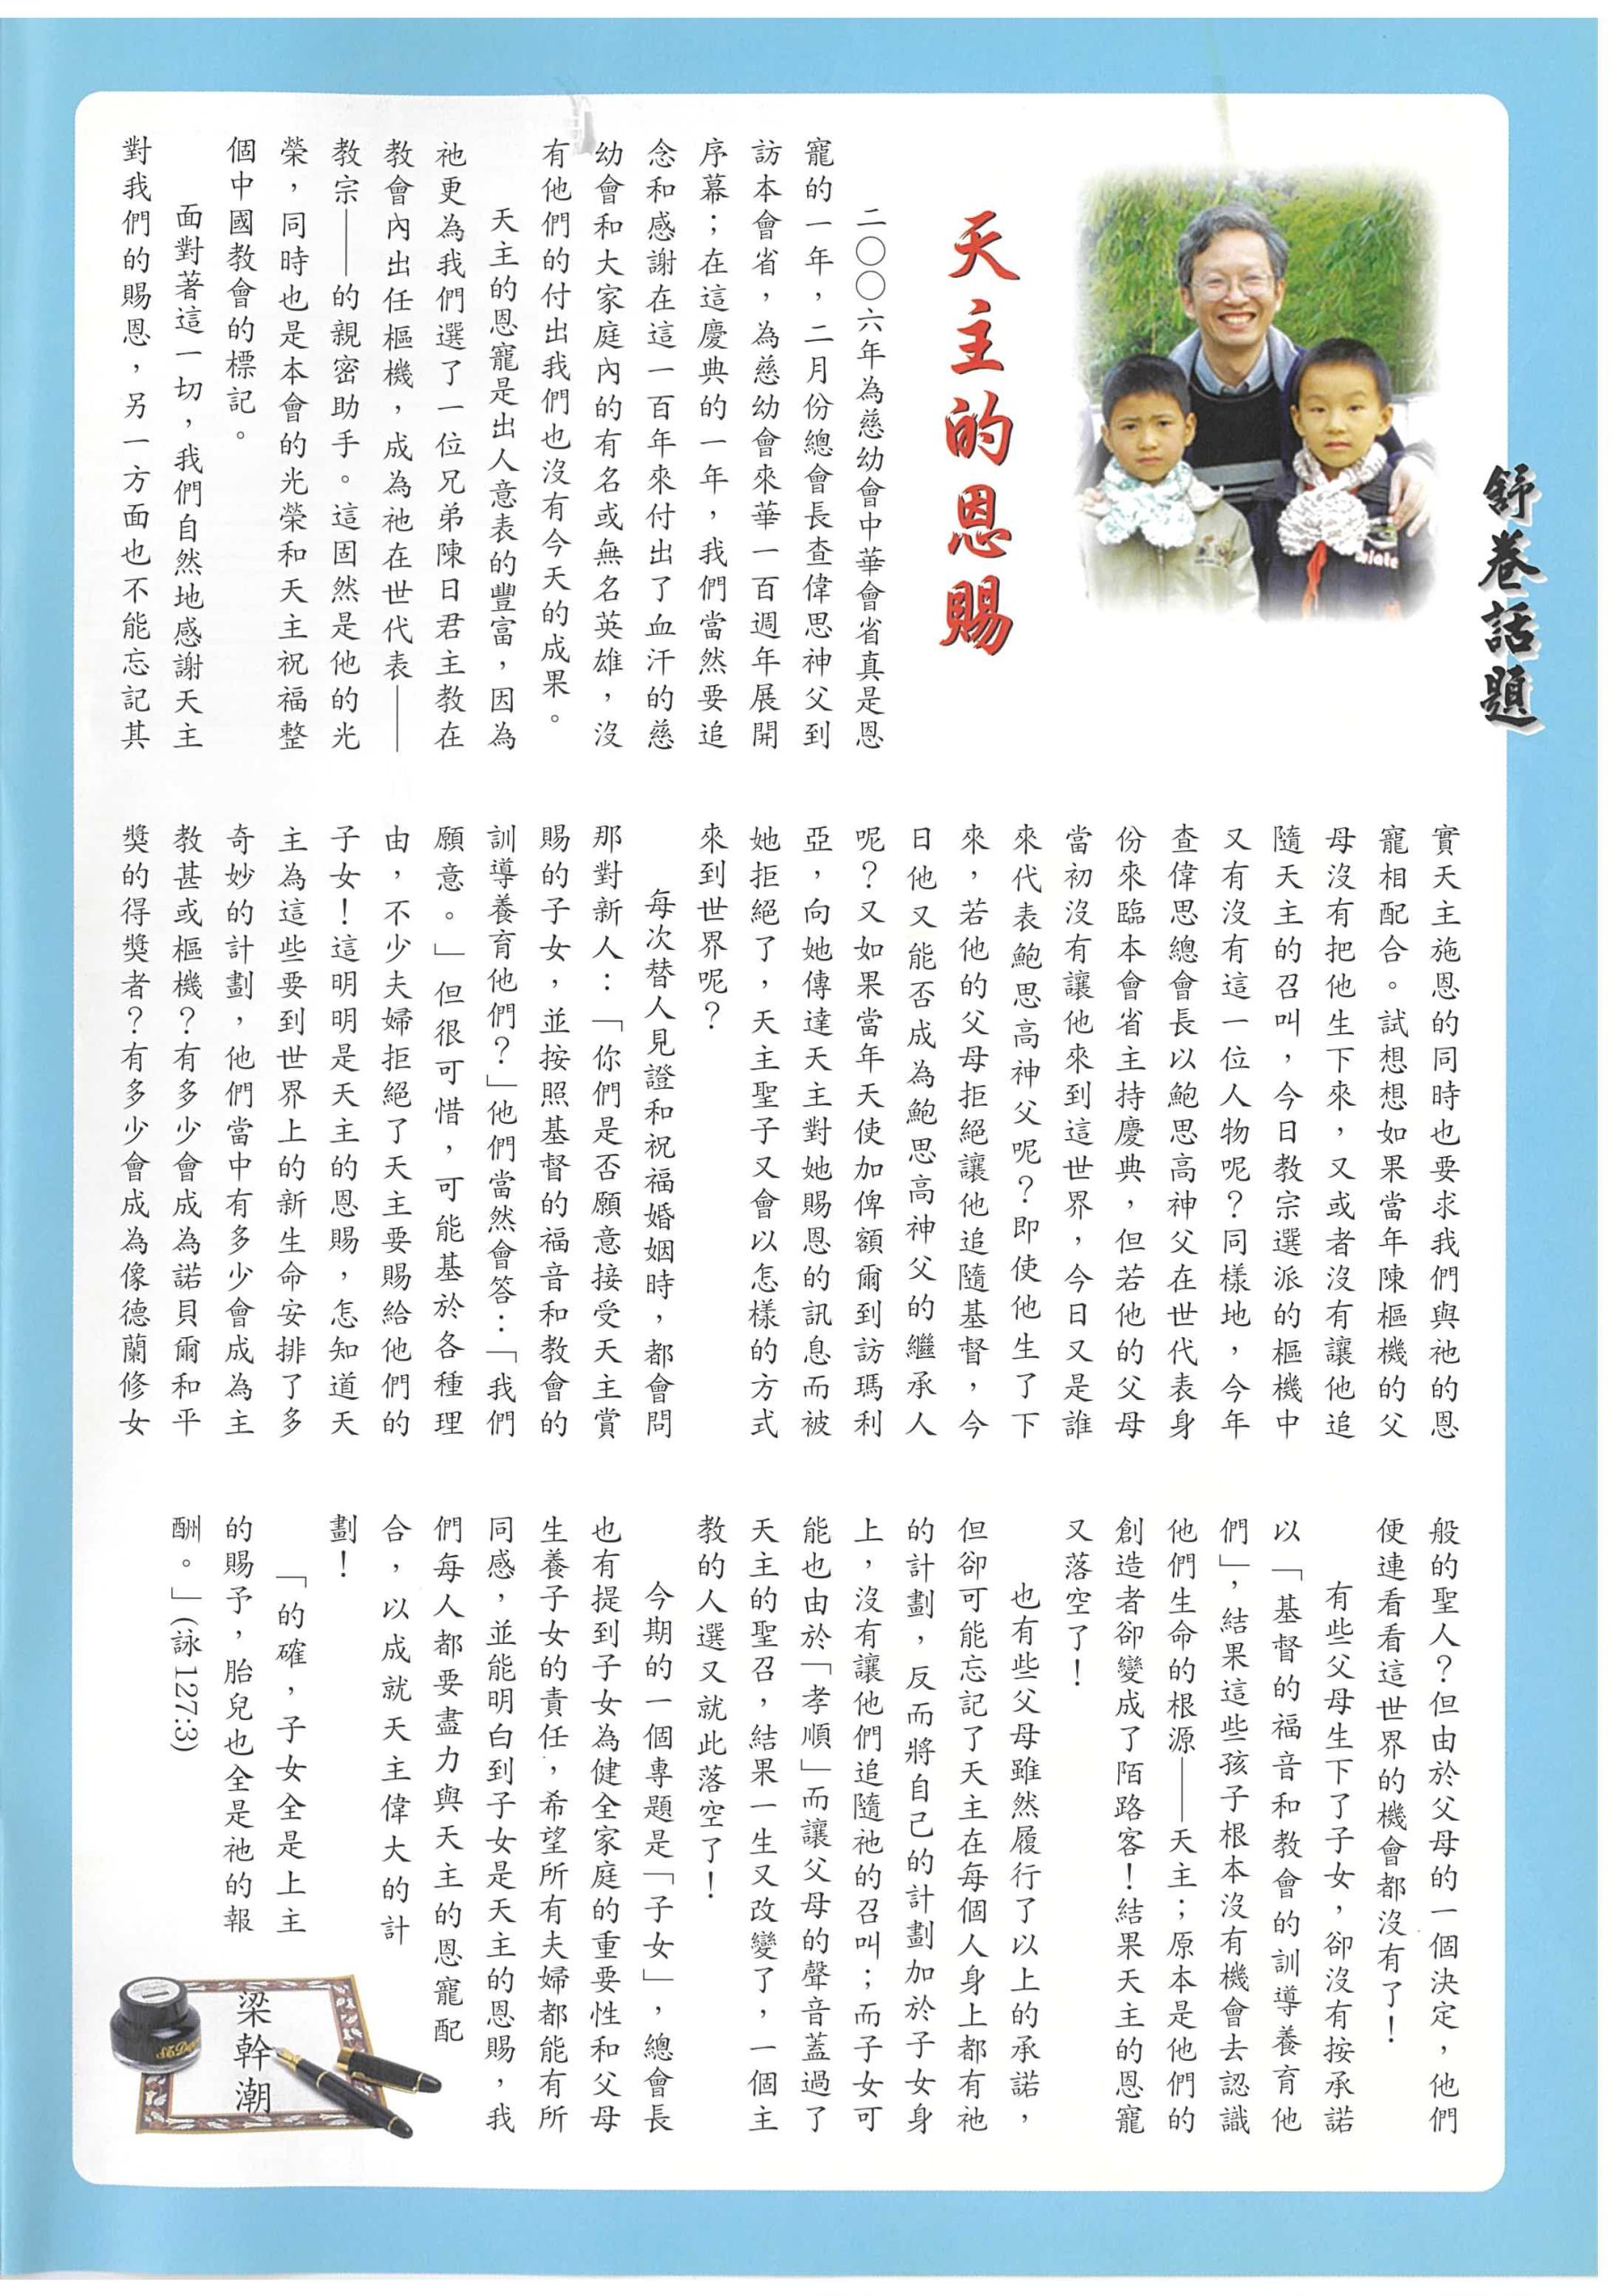 舒卷話題
天主的恩賜
二〇〇六年為慈幼會中華會省真是恩
寵的一年，二月份總會長查偉思神父到
訪本會省，為慈幼會來華一百週年展開
序幕；在這慶典的一年，我們當然要追
念和感謝在這一百年來付出了血汗的慈
幼會和大家庭內的有名或無名英雄，沒
有他們的付出我們也沒有今天的成果。
天主的恩寵是出人意表的豐富，因為
祂更為我們選了一位兄弟陳日君主教在
教會內出任樞機，成為祂在世代表——
教宗——的親密助手。這固然是他的光
榮，同時也是本會的光榮和天主祝福整
個中國教會的標記。
面對著這一切，我們自然地感謝天主
對我們的賜恩，另一方面也不能忘記其
實天主施恩的同時也要求我們與祂的恩
寵相配合。試想想如果當年陳樞機的父
母沒有把他生下來，又或者沒有讓他追
隨天主的召叫，今日教宗選派的樞機中
又有沒有這一位人物呢？同樣地，今年
查偉思總會長以鮑思高神父在世代表身
份來臨本會省主持慶典，但若他的父母
當初沒有讓他來到這世界，今日又是誰
來代表鮑思高神父呢？即使他生了下
來，若他的父母拒絕讓他追隨基督，今
日他又能否成為鮑思高神父的繼承人
呢？又如果當年天使加俾額爾到訪瑪利
亞，向她傳達天主對她賜恩的訊息而被
她拒絕了，天主聖子又會以怎樣的方式
來到世界呢？
每次替人見證和祝福婚姻時，都會問
那對新人：「你們是否願意接受天主賞
賜的子女，並按照基督的福音和教會的
訓導養育他們？」他們當然會答：「我們
願意。」但很可惜，可能基於各種理
由，不少夫婦拒絕了天主要賜給他們的
子女！這明明是天主的恩賜，怎知道天
主為這些要到世界上的新生命安排了多
奇妙的計劃，他們當中有多少會成為主
教甚或樞機？有多少會成為諾貝爾和平
獎的得獎者？有多少會成為像德蘭修女
般的聖人？但由於父母的一個決定，他們
便連看看這世界的機會都沒有了！
有些父母生下了子女，卻沒有按承諾
以「基督的福音和教會的訓導養育他
們」，結果這些孩子根本沒有機會去認識
他們生命的根源——天主；原本是他們的
創造者卻變成了陌路客！結果天主的恩寵
又落空了！
也有些父母雖然履行了以上的承諾，
但卻可能忘記了天主在每個人身上都有祂
的計劃，反而將自己的計劃加於子女身
上，沒有讓他們追隨祂的召叫；而子女可
能也由於「孝順」而讓父母的聲音蓋過了
天主的聖召，結果一生又改變了，一個主
教的人選又就此落空了！
今期的一個專題是「子女」，總會長
也有提到子女為健全家庭的重要性和父母
生養子女的責任，希望所有夫婦都能有所
同感，並能明白到子女是天主的恩賜，我
們每人都要盡力與天主的恩寵配
合，以成就天主偉大的計
劃！
「的確，子女全是上主
的賜予，胎兒也全是祂的報
酬。」(詠127:3)
梁幹潮